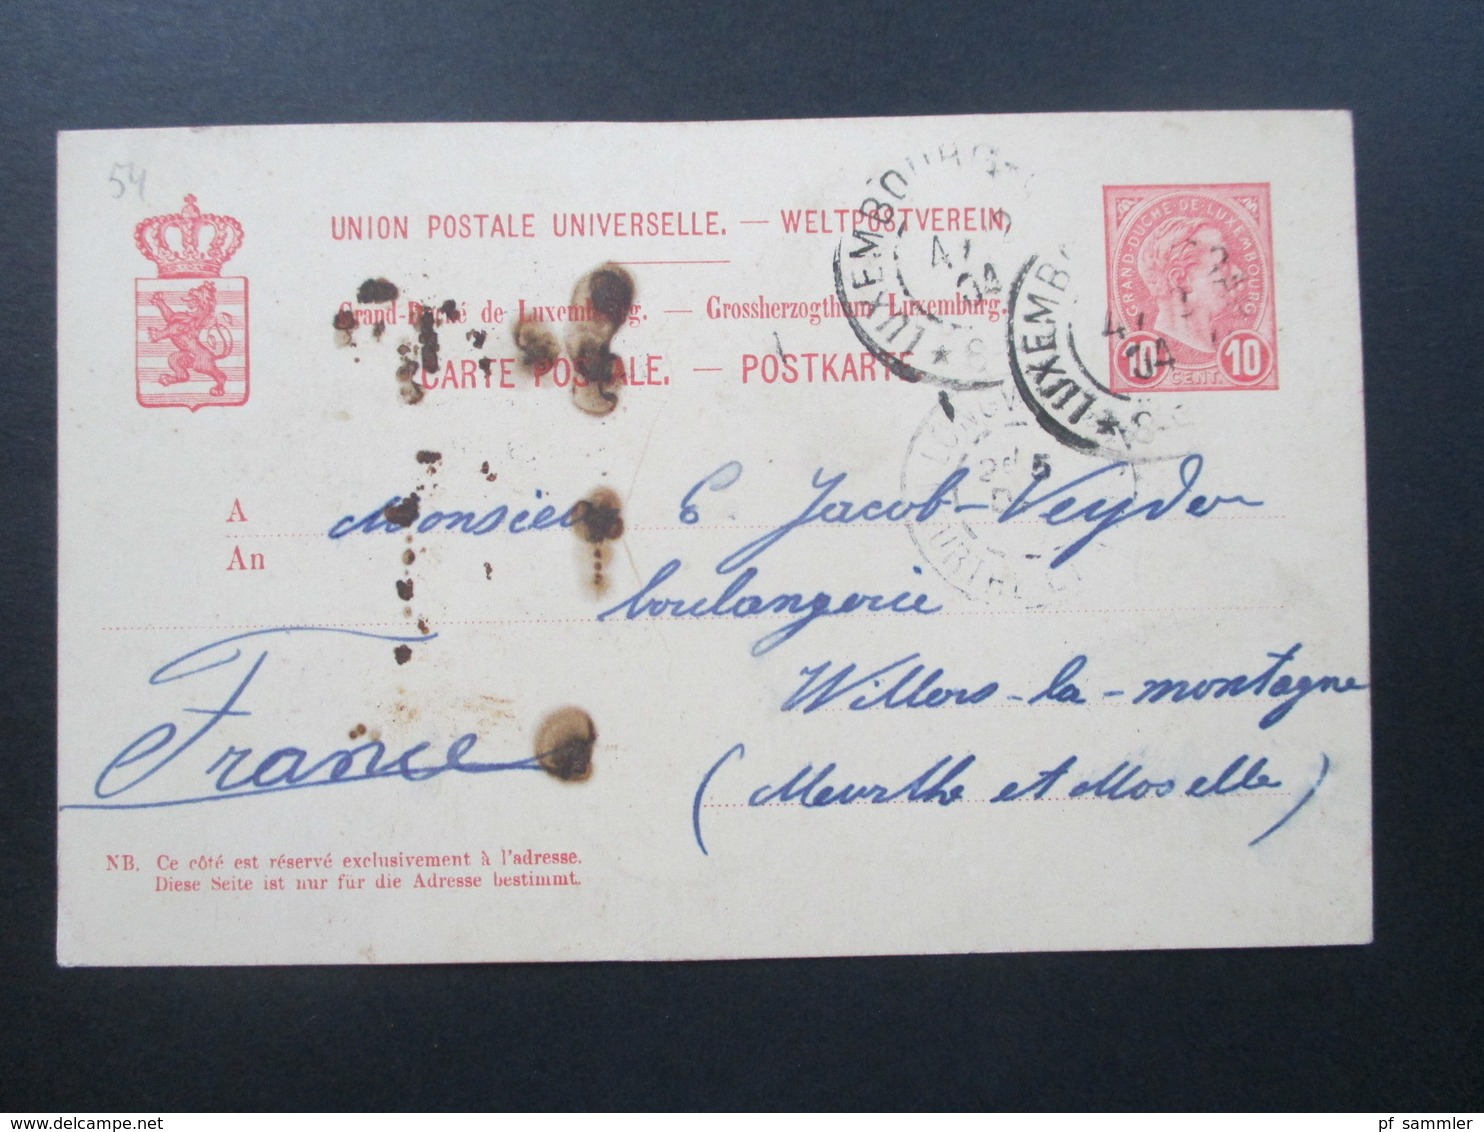 54
UNION POSTALE UNIVERSELLE. — WELTPOSTVEREIN.
Grand-Duché de Luxembourg. — Grossherzogthum Luxemburg.
CARTE POSTALE. — POSTKARTE
LUXEMBOURG
04
LUXEMB
04
GRAND-DUCHÉ DE LUXEMBOURG
10 CENT. 10
LONGW
5
A Monsieur E Jacob-Veyder
An
boulangerie
Willers-la-montagne
France
(Meurthe et Moselle)
NB. Ce côté est réservé exclusivement à l'adresse.
Diese Seite ist nur für die Adresse bestimmt.
pf_sammler